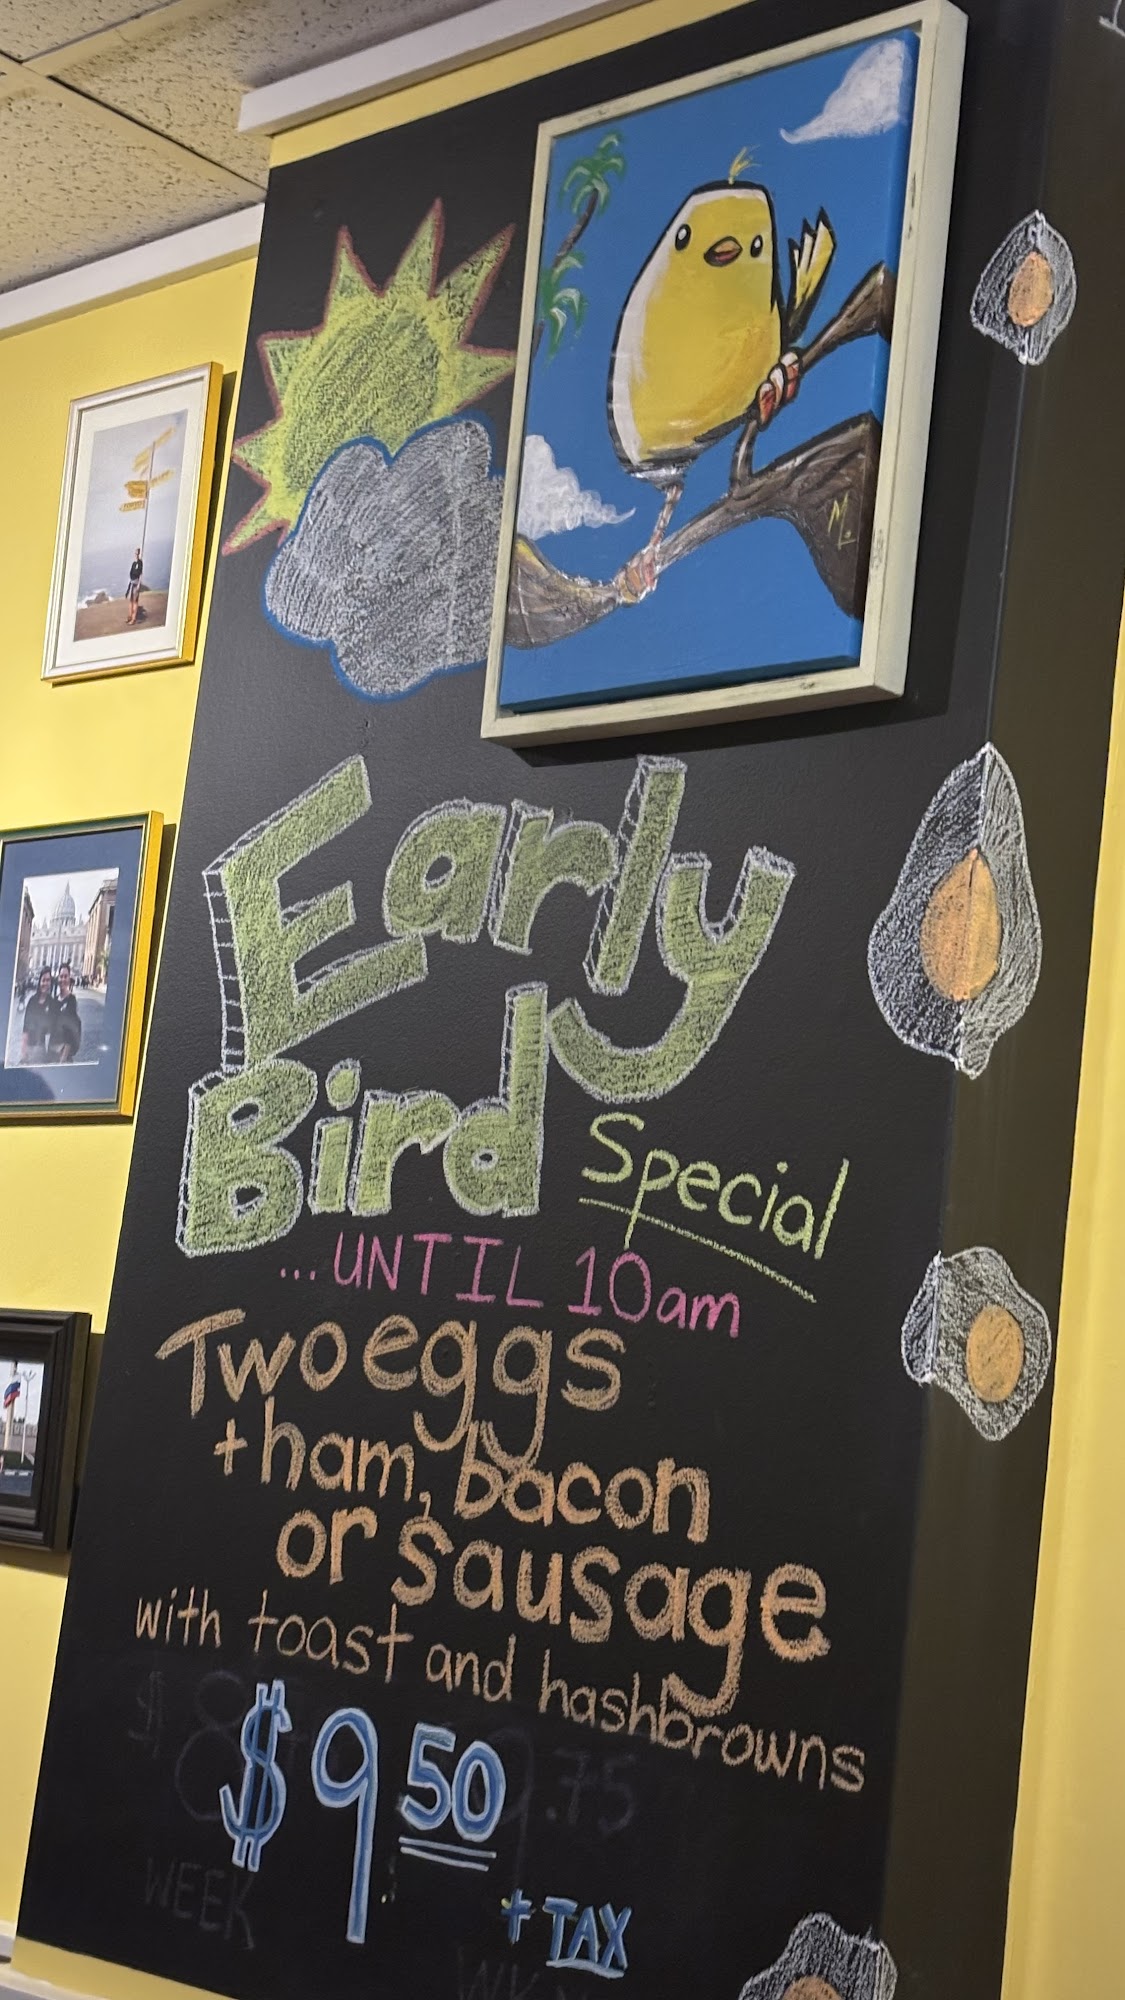 Early
Bird Special
...UNTIL 10am
Two eggs
+ham, bacon
or sausage
with toast and hashbrowns
$9 50
+ TAX
$8 9.75
WEEK